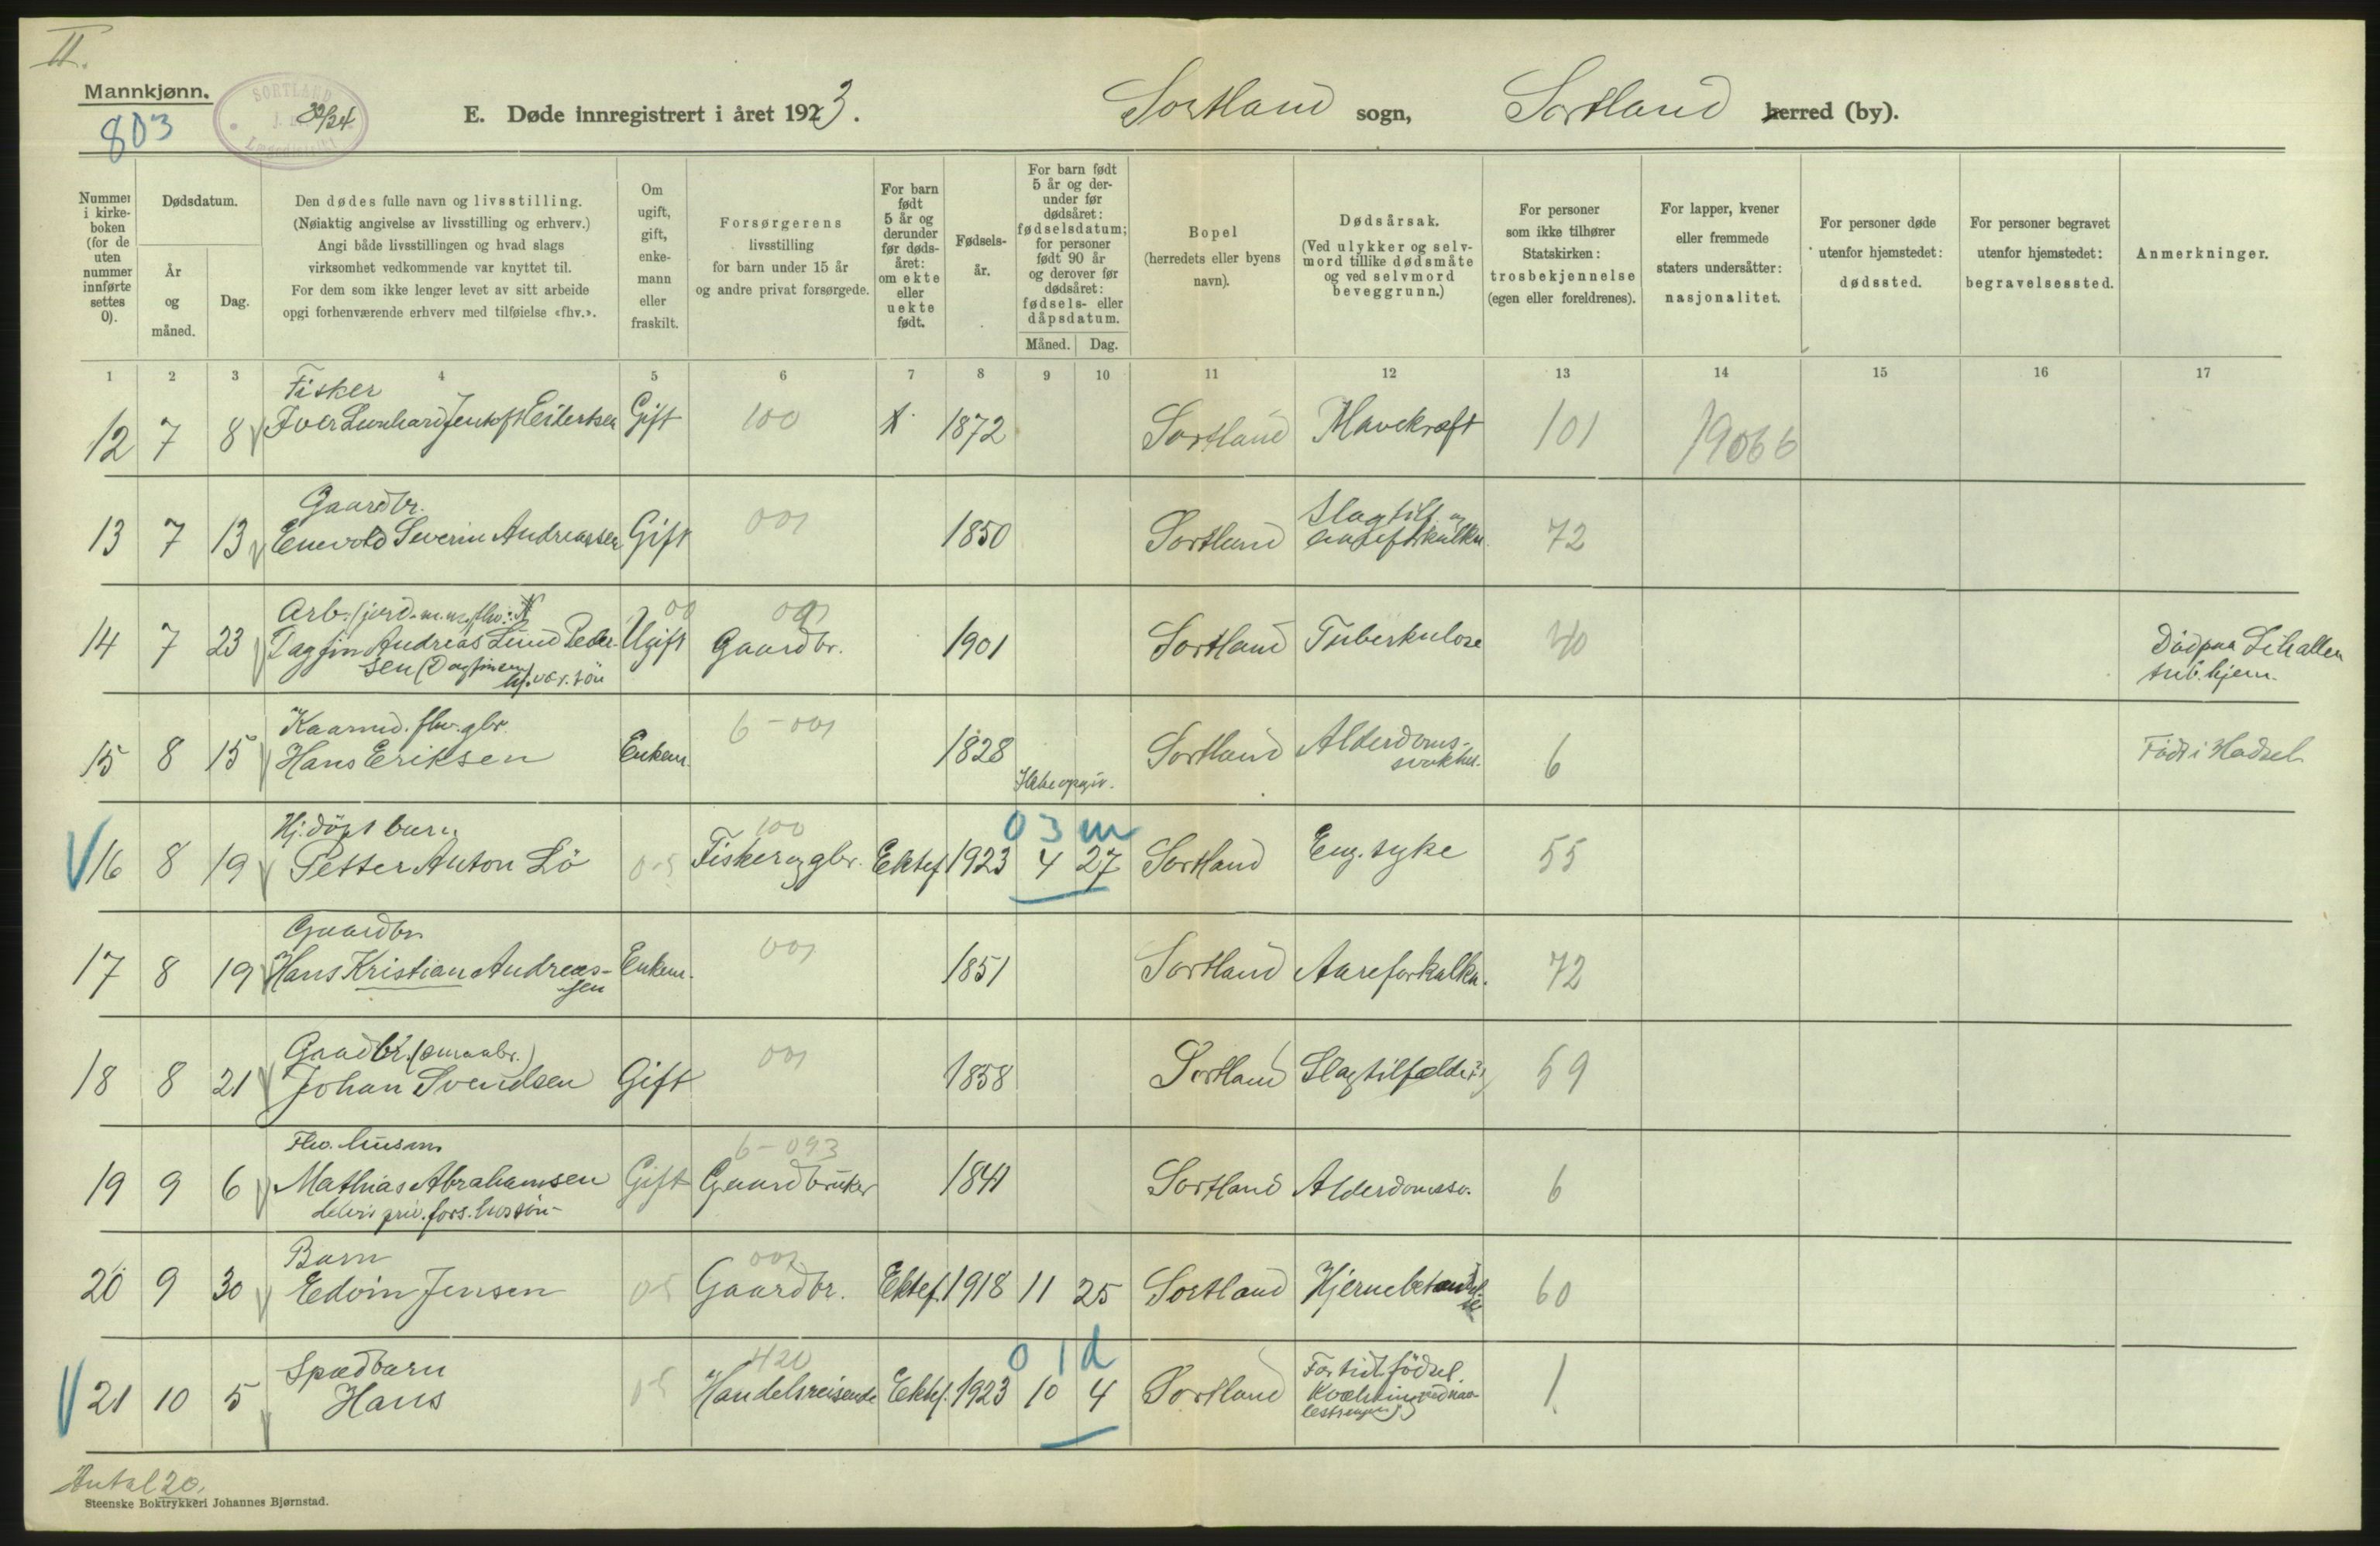 II.
Mannkjønn.
803
SORTLAND
32/24
E. Døde innregistrert i året 1923.
Sortland sogn,
Sortland herred (by).
Nummer i kirkeboken (for de uten nummer innførte settes 0).
Dødsdatum.
År og måned.
Dag.
Den dødes fulle navn og livsstilling.
(Nøiaktig angivelse av livsstilling og erhverv.)
Angi både livsstillingen og hvad slags
virksomhet vedkommende var knyttet til.
For dem som ikke lenger levet av sitt arbeide
opgi forhenværende erhverv med tilføielse «fhv.».
Om ugift, gift, enkemann eller fraskilt.
Forsørgerens
livsstilling
for barn under 15 år
og andre privat forsørgede.
For barn født 5 år og derunder før dødsåret: om ekte eller uekte født.
Fødselsår.
For barn født 5 år og derunder før dødsåret: fødselsdatum; for personer født 90 år og derover før dødsåret: fødsels- eller dåpsdatum.
Måned. Dag.
Bopel
(herredets eller byens
navn).
Dødsårsak.
(Ved ulykker og selvmord tillike dødsmåte og ved selvmord beveggrunn.)
For personer
som ikke tilhører
Statskirken:
trosbekjennelse
(egen eller foreldrenes).
For lapper, kvener
eller fremmede
staters undersåtter:
nasjonalitet.
For personer døde
utenfor hjemstedet:
dødssted.
For personer begravet
utenfor hjemstedet:
begravelsessted.
Anmerkninger.
1 2 3 4 5 6 7 8 9 10 11 12 13 14 15 16 17
Fisker
12 7 8 Iver Leonhard Jentoft Eilertsen Gift 100 1872 Sortland Mavekræft 101 19066
Gaardbr.
13 7 13 Enevold Severin Andreassen Gift 001 1850 Sortland Slagtilf. og 72
Arb. (jord. m.m.
14 7 23 Dagfin Andreas Lund Peder- Ugift 00 Gaardbr. 1901 Sortland Tuberkulose 40 Död paa
sen (Dagfinsen)
tub.hjem.
Kaarmd. fhv. gbr.
15 8 15 Hans Eriksen Enkem. 6-001 1828 Sortland Alderdoms- 6 Födt i Hadsel
svakhet.
Ikke opgiv.
Hj.döpt barn 03m
16 8 19 Petter Anton Lö 0-5 100 Fisker og gbr. Ektef. 1923 4 27 Sortland Eng. syke 55
Gaardbr.
17 8 19 Hans Kristian Andreas- Enkem. 001 1851 Sortland Aareforkalkn. 72
sen
Gaardbr. (smaabr.)
18 8 21 Johan Svendsen Gift 001 1858 Sortland Slagtilfælde 59
Fhv. husm.
19 9 6 Mathias Abrahamsen Gift 6-093 Gaardbruker 1841 Sortland Alderdomssv. 6
delvis priv. fors. hos sön
Barn
20 9 30 Edvin Jensen 0-5 Gaardbr. Ektef. 1918 11 25 Sortland Hjernebetændelse 60
Spædbarn 01d
21 10 5 Hans 0-5 420 Handelsreisende Ektef. 1923 10 4 Sortland For tidl. födsel. 1
Antal 20.
Steenske Boktrykkeri Johannes Bjørnstad.